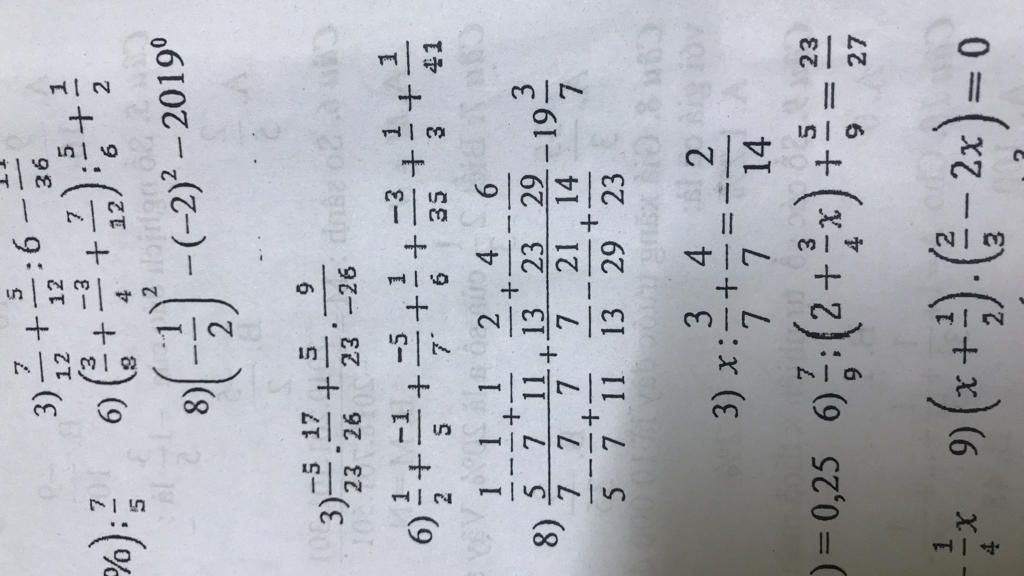 3) 7/12 + 5/12 : 6 − 11/36
%) : 7/5 6) (3/8 + −3/4 + 7/12) : 5/6 + 1/2
8) (−1/2)² − (−2)² − 2019⁰
3) −5/23 · 17/26 + 5/23 · 9/−26
6) 1/2 + −1/5 + −5/7 + 1/6 + −3/35 + 1/3 + 1/41
8) (1/5 − 1/7 + 1/11)/(7/5 − 7/7 + 7/11) + (2/13 + 4/23 − 6/29)/(7/13 − 21/29 + 14/23) − 19 3/7
3) x : 3/7 + 4/7 = 2/14
) = 0,25 6) 7/9 : (2 + 3/4 x) + 5/9 = 23/27
− 1/4 x 9) (x + 1/2) . (2/3 − 2x) = 0